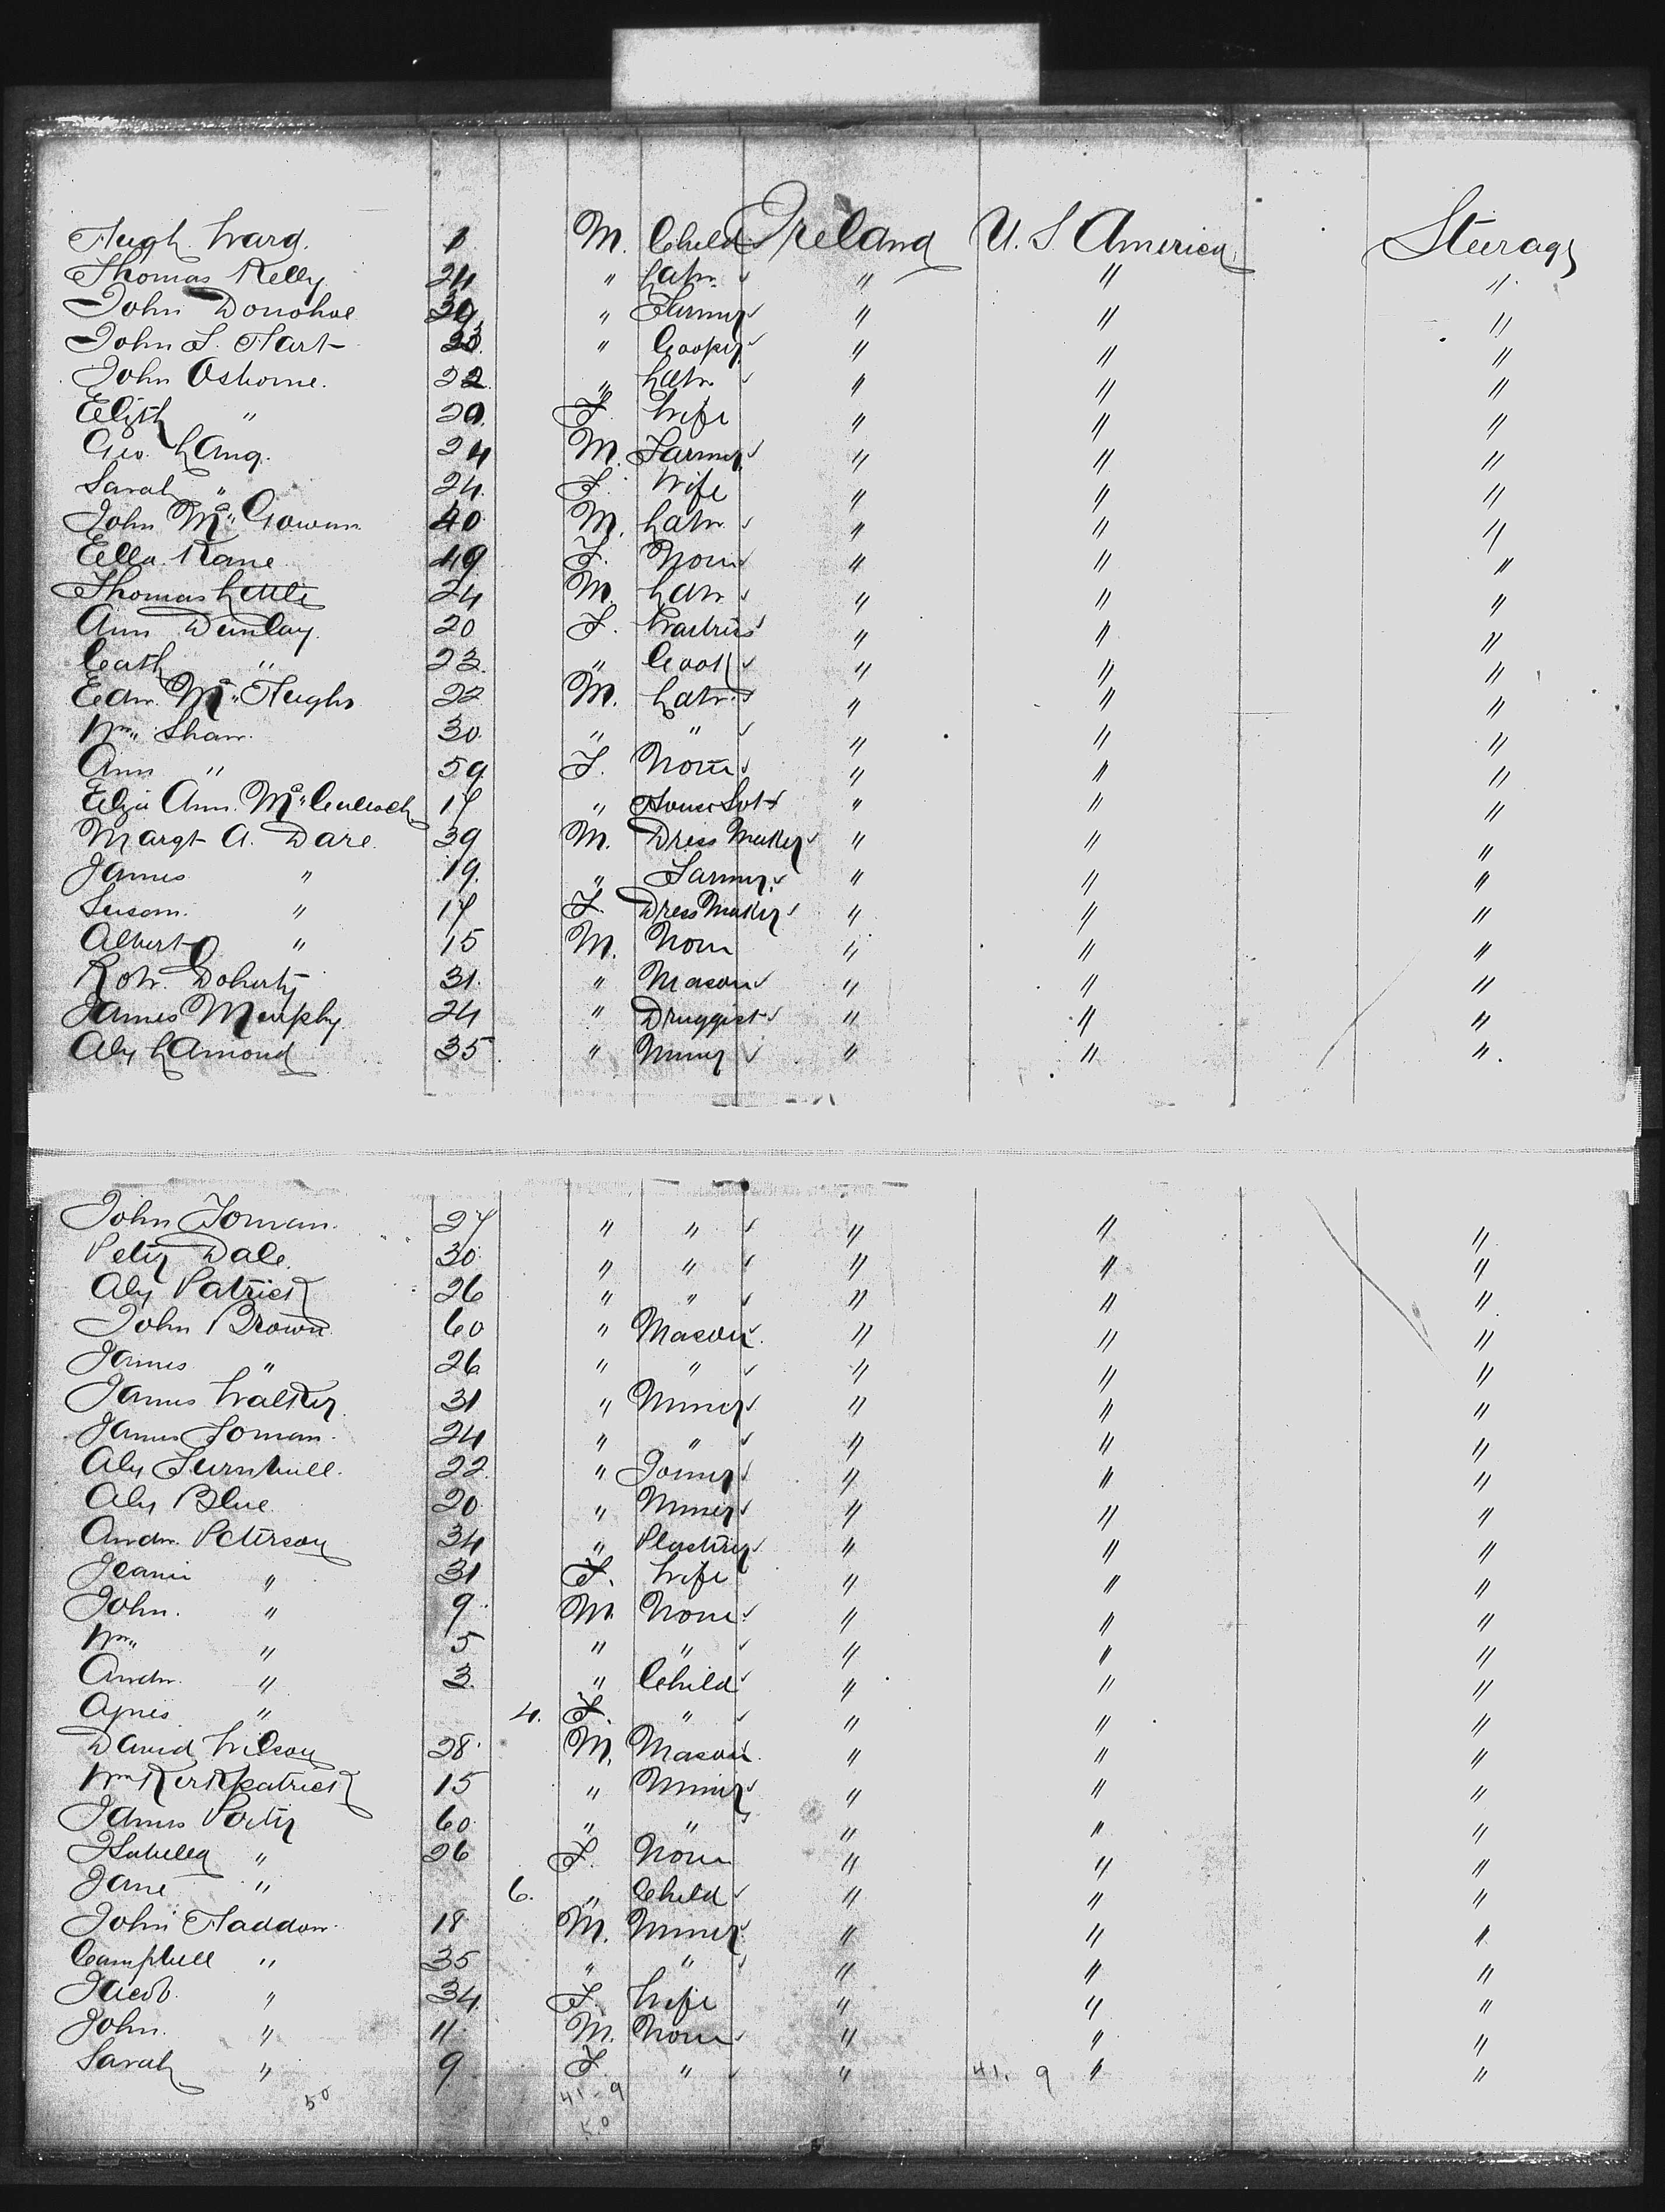 Hugh Ward. 1 M. Child Ireland U. S. America Steerage
Thomas Kelly 24 " Labr. " " "
John Donohoe 30 " Farmer " " "
John S. Hart 23 " Cooper " " "
John Osborne. 22 " Labr. " " "
Elizth " 20 F. Wife " " "
Geo. Lang. 24 M. Farmer " " "
Sarah " 24 F. Wife " " "
John McGowan 40 M. Labr. " " "
Ella Kane 49 F. None " " "
Thomas Little 24 M. Labr " " "
Ann Dunlay. 20 F. Waitress " " "
Cath " 23 " Cook " " "
Edw. McHughs 22 M. Labr. " " "
Wm. Shaw. 30 " " " " "
Ann " 59 F. None " " "
Eliza Ann. McCulloch 17 " House Svt " " "
Margt A. Dare 39 M. Dress Maker " " "
James " 19. " Farmer " " "
Susan. " 17 F. Dress Maker " " "
Albert " 15 M. None " " "
Robr. Doherty 31. " Mason " " "
James Murphy. 24 " Druggist " " "
Alex Lamond 35 " Miner " " "
John Toman. 27 " " " " "
Peter Dale. 30 " " " " "
Alex Patrick 26 " " " " "
John Brown 60 " Mason " " "
James " 26 " " " " "
James Walker 31 " Miner " " "
James Toman. 24 " " " " "
Alex Turnbull. 22 " Joiner " " "
Alex Blue 20 " Miner " " "
Andw. Peterson 34 " Plasterer " " "
Jeanie " 31 F. Wife " " "
John. " 9 M. None " " "
Wm " 5 " " " " "
Andw. " 3 " Child " " "
Agnes " 4. F. " " " "
David Wilson 28 M. Mason " " "
Wm Kirkpatrick 15 " Miner " " "
James Porter 60 " " " " "
Isabella " 26 F. None " " "
Jane " 6. " Child " " "
John Haddow 18 M. Miner " " "
Campbell " 35 " " " " "
Jacob. " 34 F. Wife " " "
John. " 11. M. None " " "
Sarah " 9 F. " " 41. 9 " "
50 41-9
50